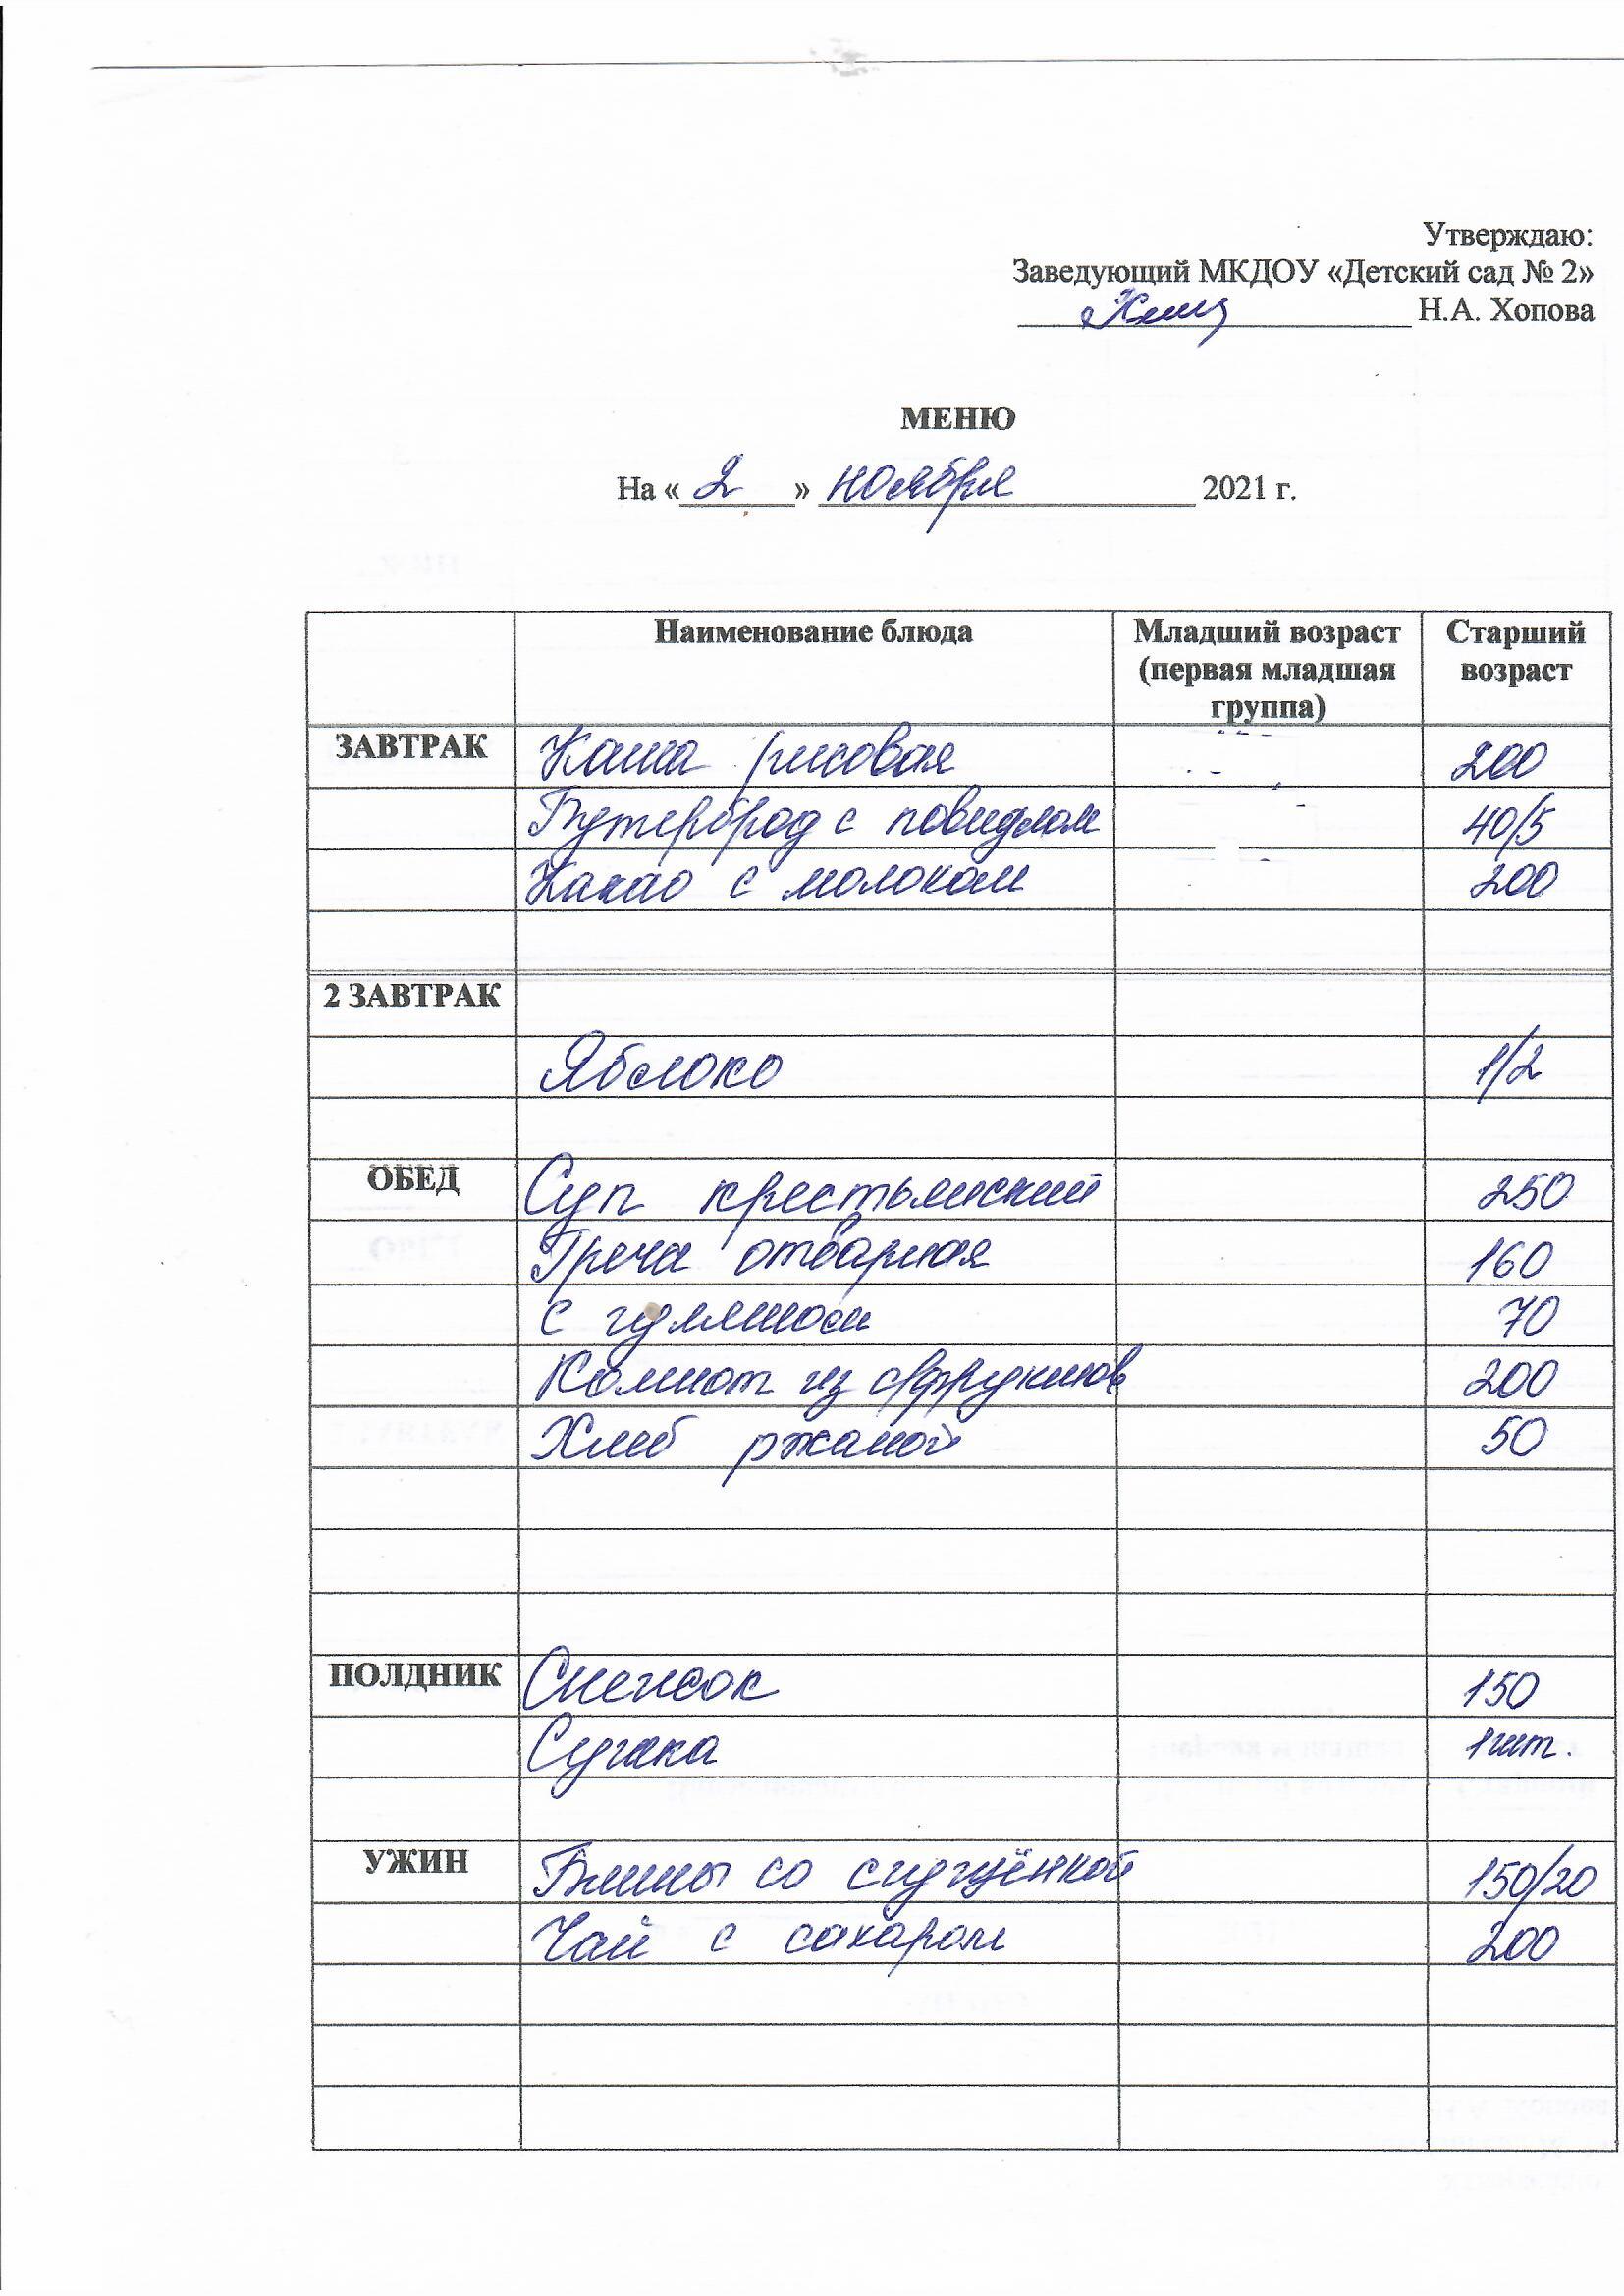 Утверждаю:
Заведующий МКДОУ «Детский сад № 2»
Н.А. Хопова
МЕНЮ
На «2» ноября 2021 г.
Наименование блюда Младший возраст (первая младшая группа) Старший возраст
ЗАВТРАК Каша рисовая 200
Бутерброд с повидлом 40/5
Какао с молоком 200
2 ЗАВТРАК
Яблоко 1/2
ОБЕД Суп крестьянский 250
Греча отварная 160
с гуляшом 70
Компот из с/фруктов 200
Хлеб ржаной 50
ПОЛДНИК Снежок 150
Сушка 1 шт.
УЖИН Блины со сгущёнкой 150/20
Чай с сахаром 200